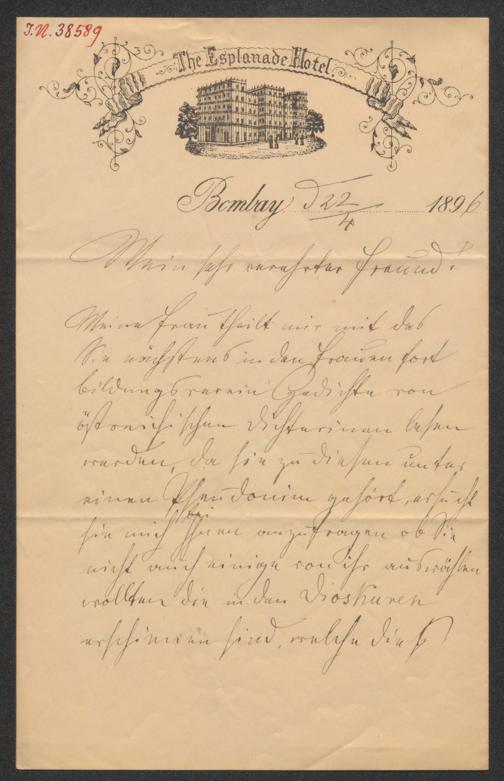 J.N. 38589
The Esplanade Hotel.
Bombay, d 22/4 1896
Mein sehr verehrter Freund!
Meine Frau theilt mir mit das
Sie nächstens in den Frauen fort
bildungsverein Gedichte von
östreichischen Dichterinen lesen
werden, da sie zu diesen unter
einen Pseudonim gehört, ersucht
sie mich bei Ihnen anzufragen ob Sie
nicht auch einige von ihr auswählen
wollten die in den Dioskuren
erschienen sind, welche dies